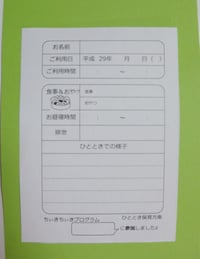 お名前
ご利用日 平成 29年 月 日 ( )
ご利用時間 ～
食事&おやつ 食事
おやつ
お昼寝時間 ～
排泄
ひとときでの様子
ちぃきちぃきプログラム ひととき保育方南
に参加しました♪